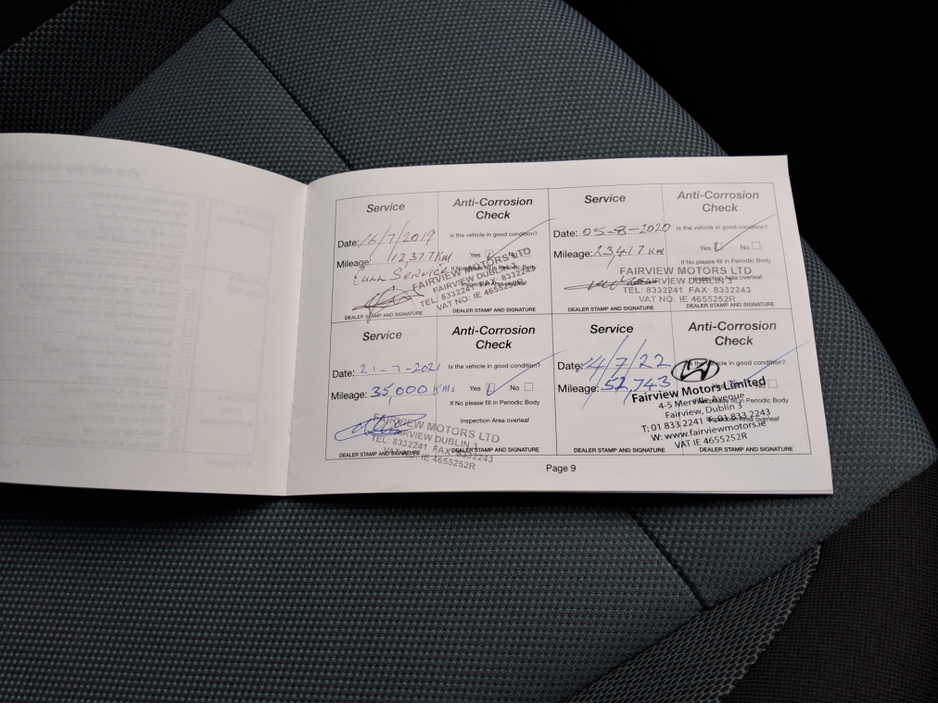 Pre-delivery Inspection
Service
Anti-Corrosion
Check
Date: 16/7/2019
Is the vehicle in good condition?
Mileage: 12377KM
Yes No
Full Service
FAIRVIEW MOTORS LTD
FAIRVIEW DUBLIN 3
TEL: 8332241 FAX: 8332243
VAT NO: IE 4655252R
DEALER STAMP AND SIGNATURE
DEALER STAMP AND SIGNATURE
Service
Anti-Corrosion
Check
Date: 05-8-2020
Is the vehicle in good condition?
Mileage: 23417 KM
Yes No
If No please fill in Periodic Body
Inspection Area overleaf
FAIRVIEW MOTORS LTD
FAIRVIEW DUBLIN 3
TEL: 8332241 FAX: 8332243
VAT NO: IE 4655252R
DEALER STAMP AND SIGNATURE
DEALER STAMP AND SIGNATURE
Service
Anti-Corrosion
Check
Date: 21-7-2021
Is the vehicle in good condition?
Mileage: 35,000 KMs
Yes No
If No please fill in Periodic Body
Inspection Area overleaf
FAIRVIEW MOTORS LTD
FAIRVIEW DUBLIN 3
TEL: 8332241 FAX: 8332243
VAT NO: IE 4655252R
DEALER STAMP AND SIGNATURE
DEALER STAMP AND SIGNATURE
Service
Anti-Corrosion
Check
Date: 14/7/22
Is the vehicle in good condition?
Mileage: 52,743
If No please fill in Periodic Body
Inspection Area overleaf
Fairview Motors Limited
4-5 Merville Avenue
Fairview, Dublin 3
T: 01 833 2241 F: 01 833 2243
W: www.fairviewmotors.ie
VAT IE 4655252R
DEALER STAMP AND SIGNATURE
DEALER STAMP AND SIGNATURE
Page 9